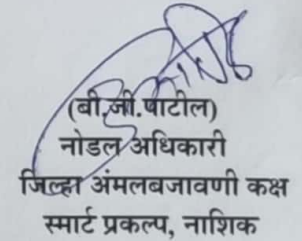 (बी.जी.पाटील)
नोडल अधिकारी
जिल्हा अंमलबजावणी कक्ष
स्मार्ट प्रकल्प, नाशिक